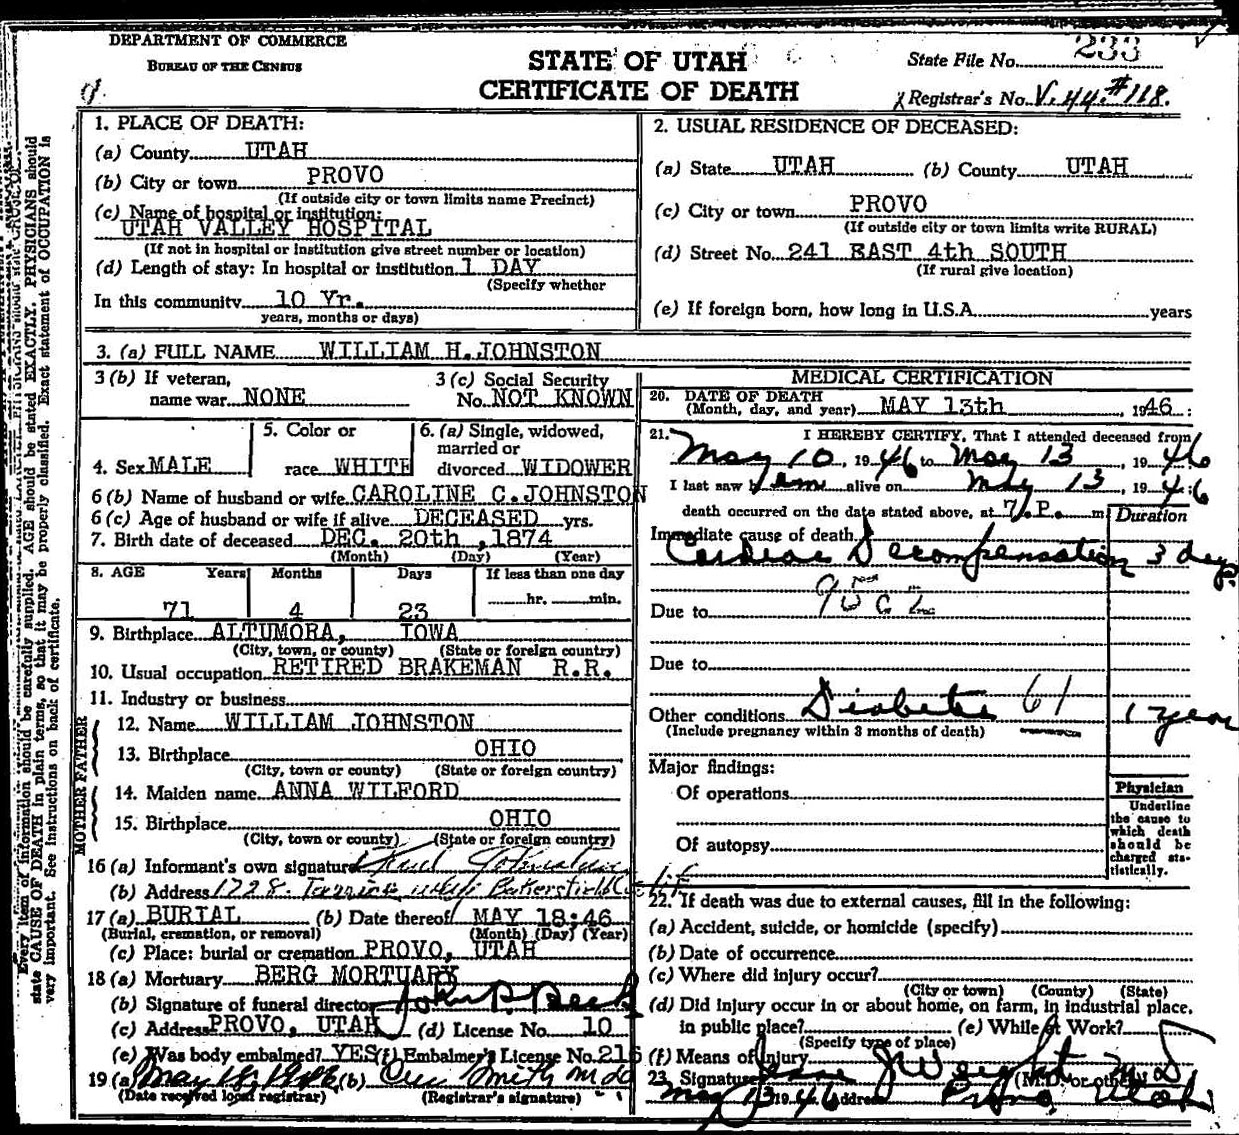 DEPARTMENT OF COMMERCE
BUREAU OF THE CENSUS
STATE OF UTAH
CERTIFICATE OF DEATH
State File No. 233
Registrar's No. V. 44. #118.
1. PLACE OF DEATH:
(a) County UTAH
(b) City or town PROVO
(If outside city or town limits name Precinct)
(c) Name of hospital or institution:
UTAH VALLEY HOSPITAL
(If not in hospital or institution give street number or location)
(d) Length of stay: In hospital or institution 1 DAY
(Specify whether
In this community 10 Yr.
years, months or days)
2. USUAL RESIDENCE OF DECEASED:
(a) State UTAH (b) County UTAH
(c) City or town PROVO
(If outside city or town limits write RURAL)
(d) Street No. 241 EAST 4th SOUTH
(If rural give location)
(e) If foreign born, how long in U.S.A. years
3. (a) FULL NAME WILLIAM H. JOHNSTON
3 (b) If veteran,
name war NONE
3 (c) Social Security
No. NOT KNOWN
4. Sex MALE
5. Color or
race WHITE
6. (a) Single, widowed,
married or
divorced WIDOWER
6 (b) Name of husband or wife CAROLINE C. JOHNSTON
6 (c) Age of husband or wife if alive DECEASED yrs.
7. Birth date of deceased DEC. 20th, 1874
(Month) (Day) (Year)
8. AGE Years Months Days If less than one day
71 4 23 hr. min.
9. Birthplace ALTUMORA, IOWA
(City, town, or county) (State or foreign country)
10. Usual occupation RETIRED BRAKEMAN R.R.
11. Industry or business
FATHER
12. Name WILLIAM JOHNSTON
13. Birthplace OHIO
(City, town or county) (State or foreign country)
MOTHER
14. Maiden name ANNA WILFORD
15. Birthplace OHIO
(City, town or county) (State or foreign country)
16 (a) Informant's own signature Johnston
(b) Address 1728 Bakersfield Calif
17 (a) BURIAL (b) Date thereof MAY 18:46
(Burial, cremation, or removal) (Month) (Day) (Year)
(c) Place: burial or cremation PROVO, UTAH
18 (a) Mortuary BERG MORTUARY
(b) Signature of funeral director John P.
(c) Address PROVO, UTAH (d) License No. 10
(e) Was body embalmed? YES (f) Embalmer's License No. 216
19 (a) May 18, 1946 (b) Smith M.D.
(Date received local registrar) (Registrar's signature)
MEDICAL CERTIFICATION
20. DATE OF DEATH
(Month, day, and year) MAY 13th, 1946:
21. I HEREBY CERTIFY, That I attended deceased from
May 10, 1946 to May 13, 1946
I last saw him alive on May 13, 1946
death occurred on the date stated above, at 7 P. m
Duration
Immediate cause of death
Cardiac Decompensation 3 days
Due to 95 c 2
Due to
Other conditions Diabetes 61 1 year
(Include pregnancy within 3 months of death)
Major findings:
Of operations
Of autopsy
Physician
Underline
the cause to
which death
should be
charged sta-
tistically.
22. If death was due to external causes, fill in the following:
(a) Accident, suicide, or homicide (specify)
(b) Date of occurrence
(c) Where did injury occur?
(City or town) (County) (State)
(d) Did injury occur in or about home, on farm, in industrial place,
in public place? (e) While at Work?
(Specify type of place)
(f) Means of Injury
23. Signature Jesse J Weight M D
(M.D. or other)
May 13 1946 Address Provo Utah
Every item of information should be carefully supplied. AGE should be stated EXACTLY. PHYSICIANS should
state CAUSE OF DEATH in plain terms, so that it may be properly classified. Exact statement of OCCUPATION is
very important. See instructions on back of certificate.